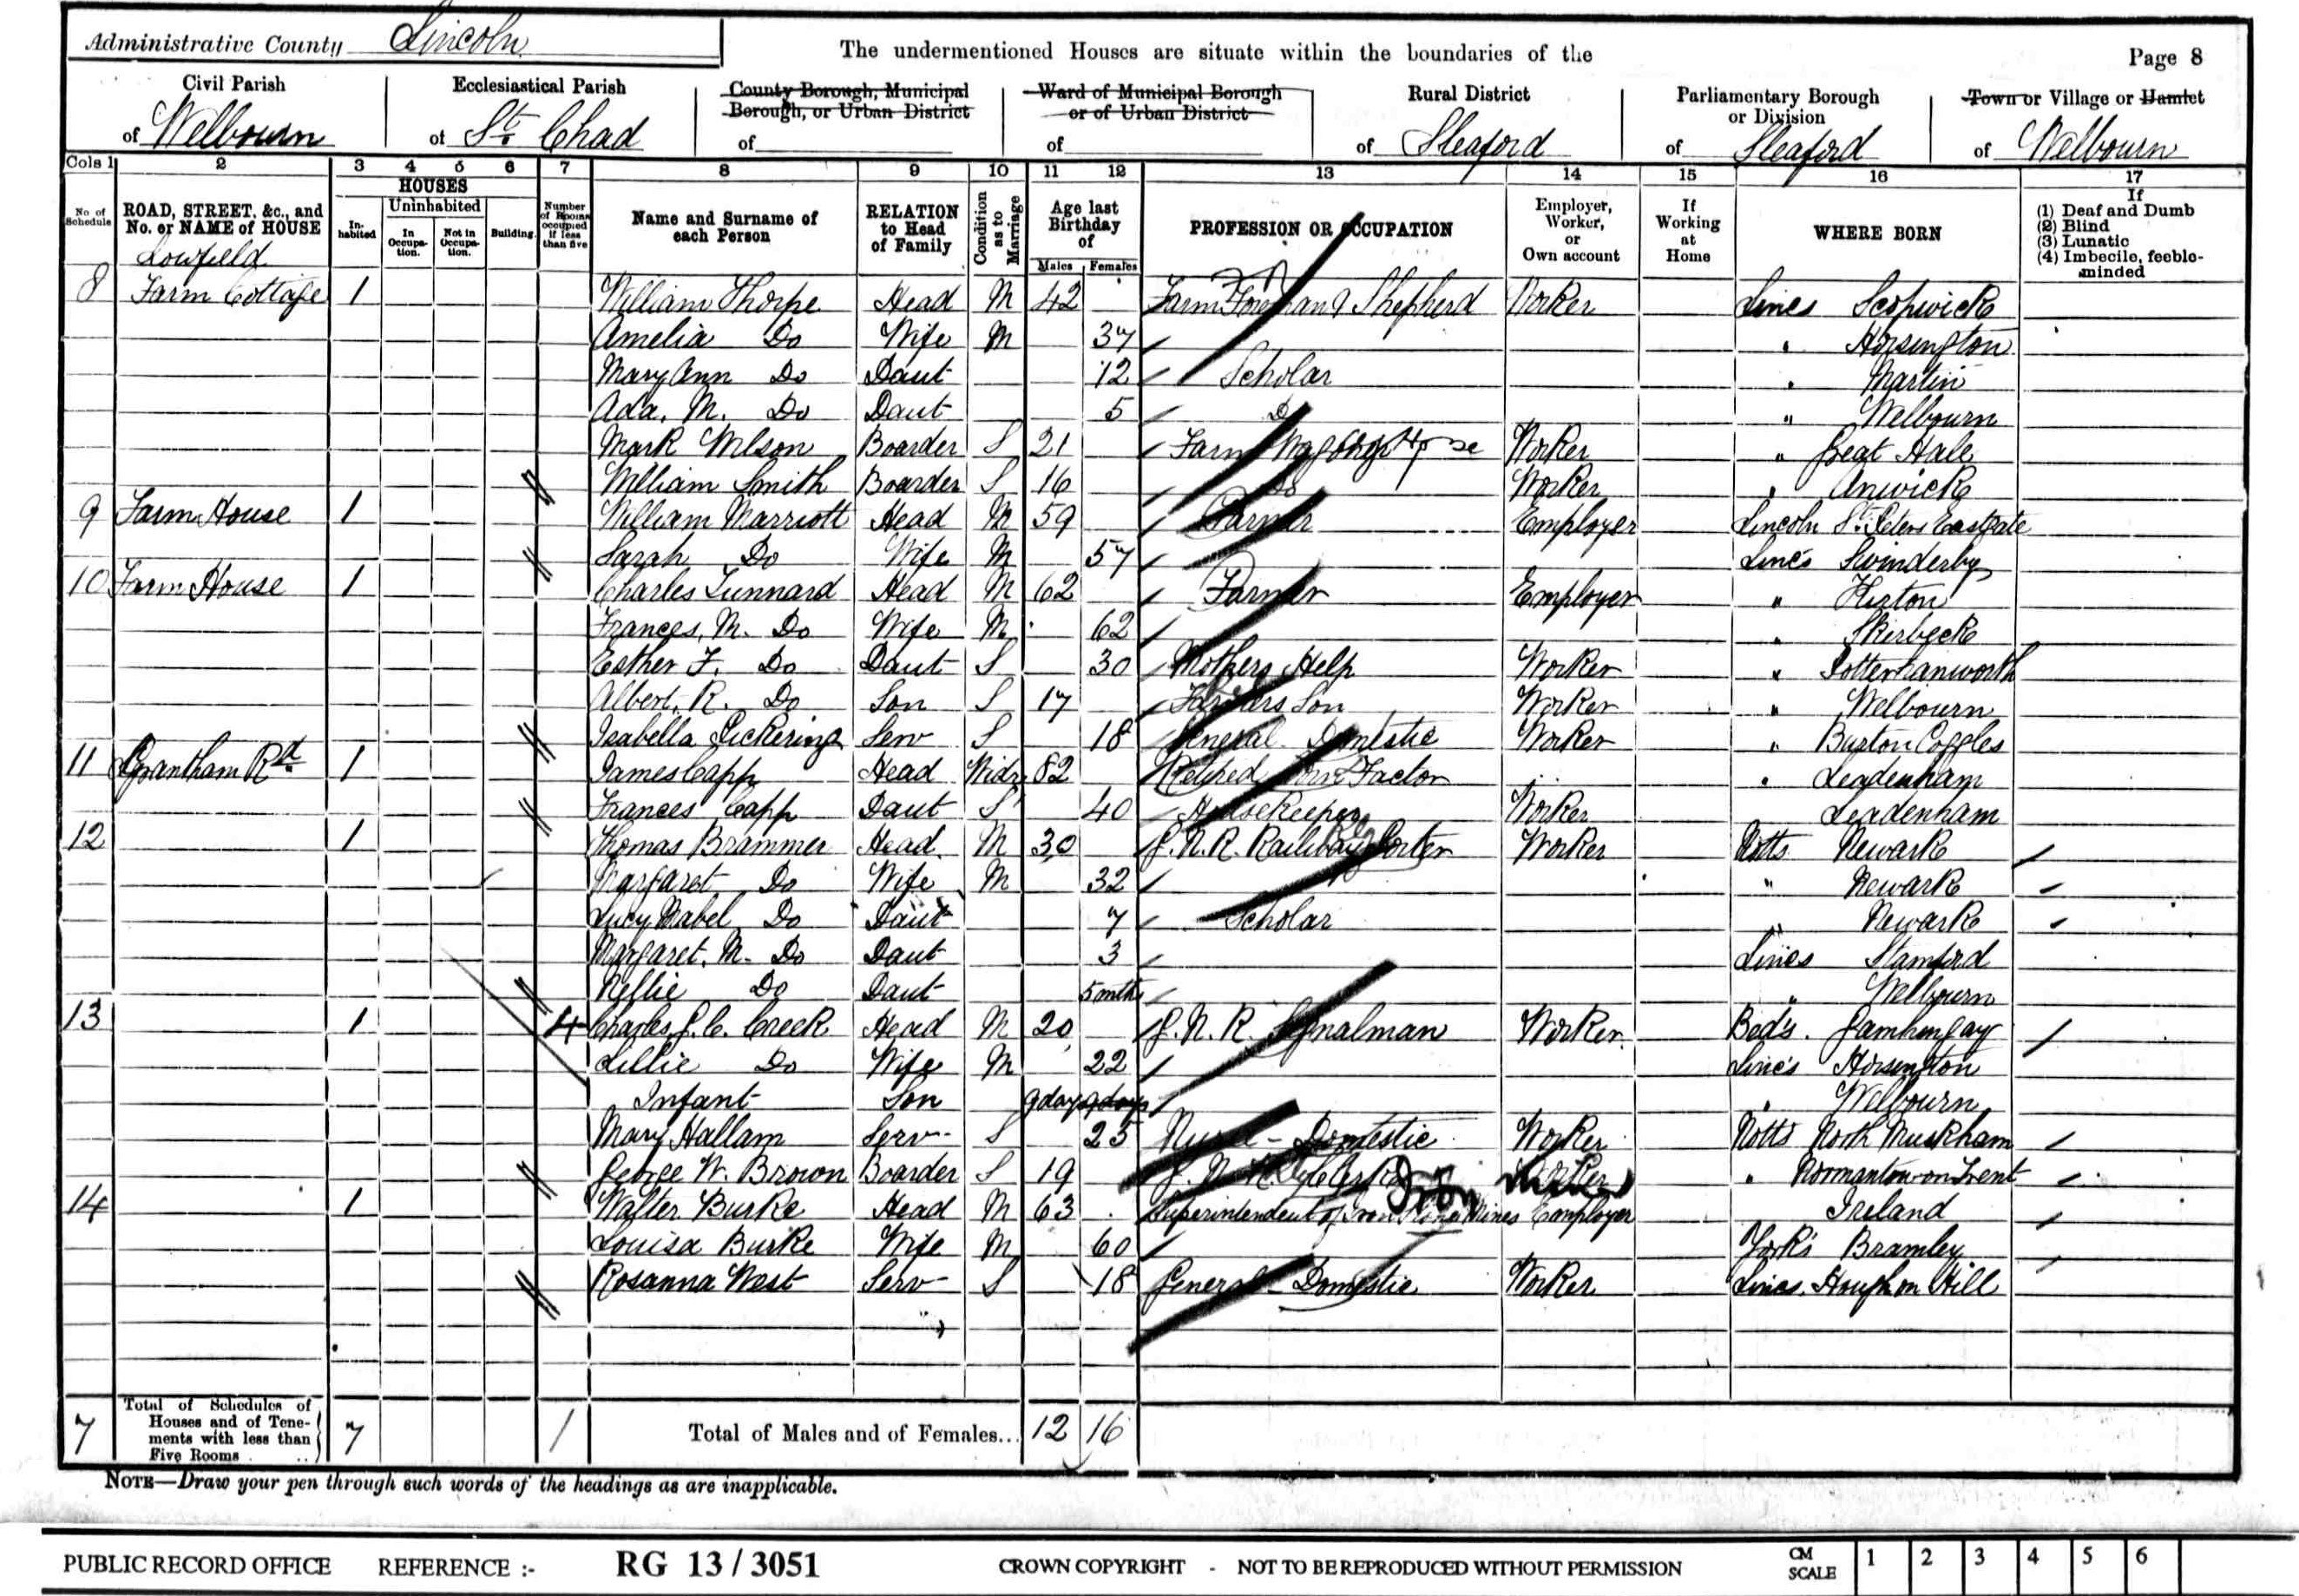 Administrative County Lincoln
The undermentioned Houses are situate within the boundaries of the
Page 8
Civil Parish of Welbourn
Ecclesiastical Parish of St. Chad
County Borough, Municipal Borough, or Urban District of
Ward of Municipal Borough or of Urban District of
Rural District of Sleaford
Parliamentary Borough or Division of Sleaford
Town or Village or Hamlet of Welbourn
Cols 1 2 3 4 5 6 7 8 9 10 11 12 13 14 15 16 17
No of Schedule
ROAD, STREET, &c., and No. or NAME of HOUSE
HOUSES
Inhabited
Uninhabited
In Occupation.
Not in Occupation.
Building.
Number of Rooms occupied if less than five
Name and Surname of each Person
RELATION to Head of Family
Condition as to Marriage
Age last Birthday of
Males Females
PROFESSION OR OCCUPATION
Employer, Worker, or Own account
If Working at Home
WHERE BORN
If
(1) Deaf and Dumb
(2) Blind
(3) Lunatic
(4) Imbecile, feeble-minded
Lowfield
8 Farm Cottage 1 William Thorpe Head M 42 Farm Foreman & Shepherd Worker Lincs Scopwick
Amelia Do Wife M 37 " Horsington
Mary Ann Do Daut 12 Scholar " Martin
Ada. M. Do Daut 5 Do " Welbourn
Mark Wilson Boarder S 21 Farm Worker " Great Hale
William Smith Boarder S 16 Do Worker " Anwick
9 Farm House 1 William Marriott Head M 59 Farmer Employer Lincoln St. Peters Eastgate
Sarah Do Wife M 57 Lincs Swinderby
10 Farm House 1 Charles Tunnard Head M 62 Farmer Employer " Kirton
Frances. M. Do Wife M 62 " Skirbeck
Esther F. Do Daut S 30 Mothers Help Worker " Potterhanworth
Albert. R. Do Son S 17 Farmers Son Worker " Welbourn
Isabella Pickering Serv S 18 General Domestic Worker " Burton Coggles
11 Grantham Rd 1 James Capp Head Widr 82 Retired Corn Factor " Leadenham
Frances Capp Daut S 40 Housekeeper Worker Leadenham
12 1 Thomas Brammer Head M 30 G. N. R. Railway Porter Worker Notts Newark
Margaret Do Wife M 32 " Newark
Lucy Mabel Do Daut 7 Scholar " Newark
Margaret. M. Do Daut 3 Lincs Stamford
Nellie Do Daut 5 mths " Welbourn
13 1 4 Charles G. C. Creek Head M 20 G. N. R. Signalman Worker Beds. Gamlingay
Lillie Do Wife M 22 Lincs Horsington
Infant Son 9 days 9 days " Welbourn
Mary Hallam Serv S 25 Nurse - Domestic Worker Notts North Muskham
George W. Brown Boarder S 19 G. N. R. Clerk Worker " Normanton-on-Trent
Iron Mines
14 1 Walter Burke Head M 63 Superintendent of Iron Stone Mines Employer Ireland
Louisa Burke Wife M 60 Yorks Bramley
Rosanna West Serv S 18 General - Domestic Worker Lincs. Hough on Hill
7 Total of Schedules of Houses and of Tenements with less than Five Rooms 7 1 Total of Males and of Females... 12 16
NOTE—Draw your pen through such words of the headings as are inapplicable.
PUBLIC RECORD OFFICE REFERENCE :- RG 13 / 3051 CROWN COPYRIGHT - NOT TO BE REPRODUCED WITHOUT PERMISSION CM SCALE 1 2 3 4 5 6